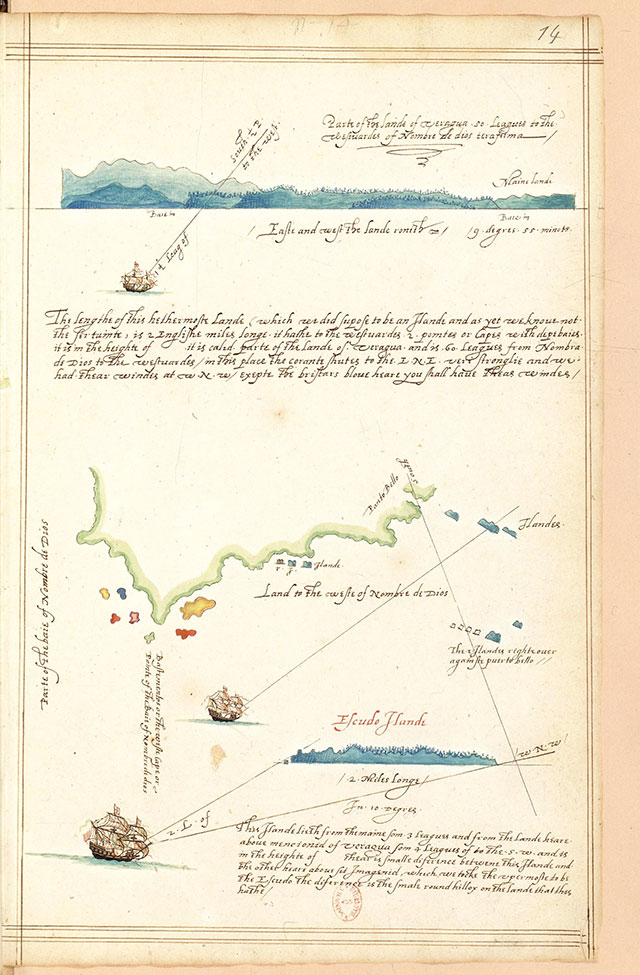 14
Parte of the lande of Veragua .50. Leagues to the
Westuardes of Nombre de dios terafirma
South
to the west.
Maine lande
Baie
Baie
Easte and west the lande
9. degres. 55 minots
Leag of
The lengthe of this hethermoste Lande (which we did supose to be an Ilande and as yet we knowe not
the sertainte) is 2 Englishe miles longe. it hathe to the westuardes .2. pointes or Capes with depe baies.
it is in the heighte of it is caled parte of the lande of Veragua and is .60. Leagues from Nombra
de Dios to the westuardes / in this place the corante shutes to the E.N.E. very stronglie and we
had thear windes at W.N.W / exepte the bristars blowe heare you shall have theas windes /
South
Ponto Bello
Ilandes.
Ilande
Land to the weste of Nombre de Dios
Parte of the baie of Nombre de Dios
Bastimentos or the weste Cape or
Pointe of the baie of Nombre de dios
The 2 Ilandes righte over
againste puerto bello //
Escudo Ilande
W.N.W
2. Miles Longe
2. L. of
In .10. Degres
This Ilande lieth from the maine som 3 leagues and from the Lande heare
above mencioned of Veragua som 4 leagues of to the .S.W. and is
in the heighte of thear is smalle diference betwene this Ilande and
the other heare above
the Escudo the diference is the smale round hilloy on the lande that this
hathe /